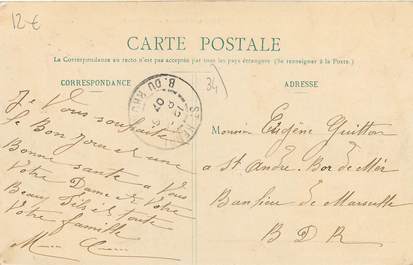 12€
CARTE POSTALE
La Correspondance au recto n'est pas acceptée par tous les pays étrangers (Se renseigner à la Poste).
CORRESPONDANCE
34
ADRESSE
B. DU RHÔ
07
Je Vous souhaite
le Bon Jour et une
Bonne sante a Vous
Votre Dame et Votre
Beau fils et toute
Votre famille
Monsieur Eugène Guitton
a St André Bor de Mer
Banlieu de Marseille
B D R